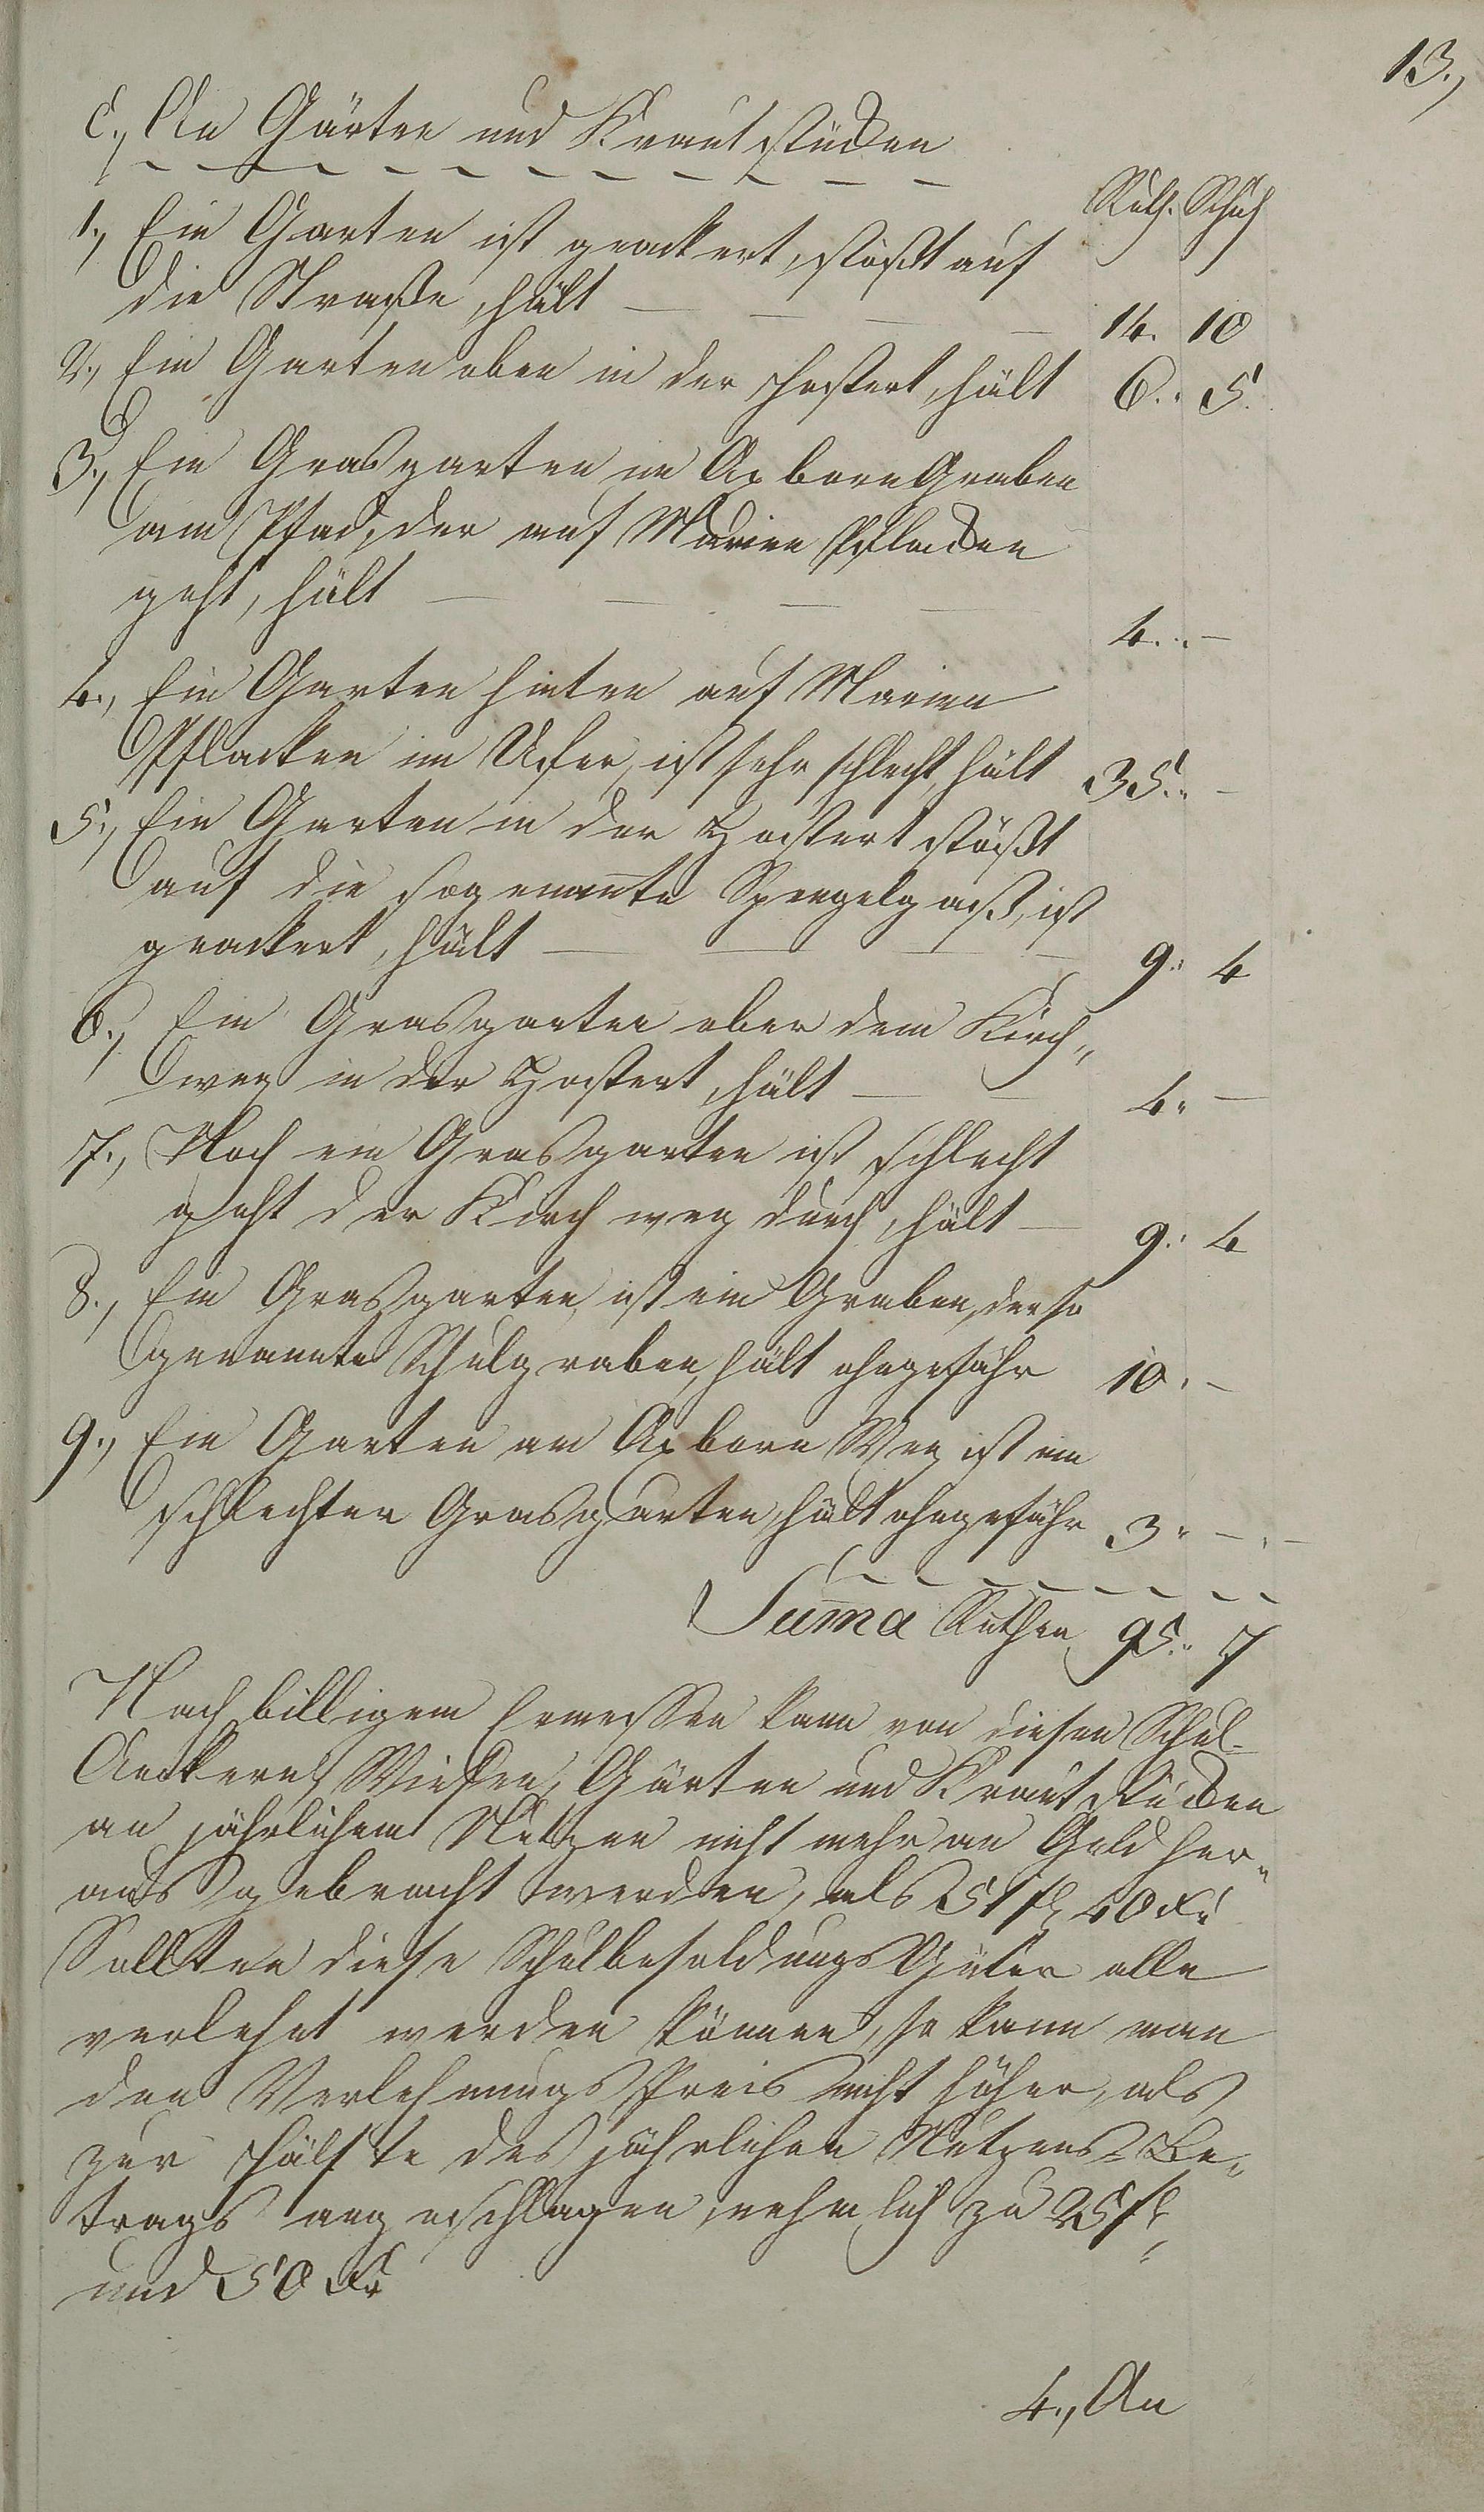 13.,
c., An Gärten und Krautstücken
Ruth. Schuh
1., Ein Garten ist geackert, stößt auf
die Straße, hält — — — — 14. 10
2., Ein Garten oben in der Hostert, hält 6.. 5.
3., Ein Grasgarten im Axborn Graben
am Pfad, der auf Marien Pflacken
geht, hält — — — — 4.. —
4., Ein Garten hinten auf Marien
Pflacken im Ufer, ist sehr schlecht, hält 35.. —
5., Ein Garten in der Hostert stößt
auf die sogenannte Spengelgaß, ist
geackert, hält — — — — 9.. 4
6., Ein Grasgarten ober dem Kirch„
weg in der Hostert, hält — — 4.. —
7., Noch ein Grasgarten ist schlecht
geht der Kirchweg durch, hält — 9.. 4
8., Ein Grasgarten, ist ein Graben, der so
genannte Schulgraben, hält ohngefähr 10. —
9., Ein Garten am Axborn Weg ist ein
schlechter Grasgarten, hält ohngefähr 3.. —. —
Suma Ruthen 95.. 7
Nach billigem Ermessen kann von diesen Schul-
Aeckern, Wiesen, Gärten und Krautstücken
an jährlichem Nutzen nicht mehr an Geld her„
ausgebracht werden, als 51 fl 40 Xr
Sollten diese Schulbesoldungs Güter alle
verlehnt werden können, so kann man
den Verlehnungs Preis nicht höher, als
zur Hälfte des jährlichen Nutzens-Be„
trags angeschlagen, nehmlich zu 25 fl,
und 50 Xr
4., An